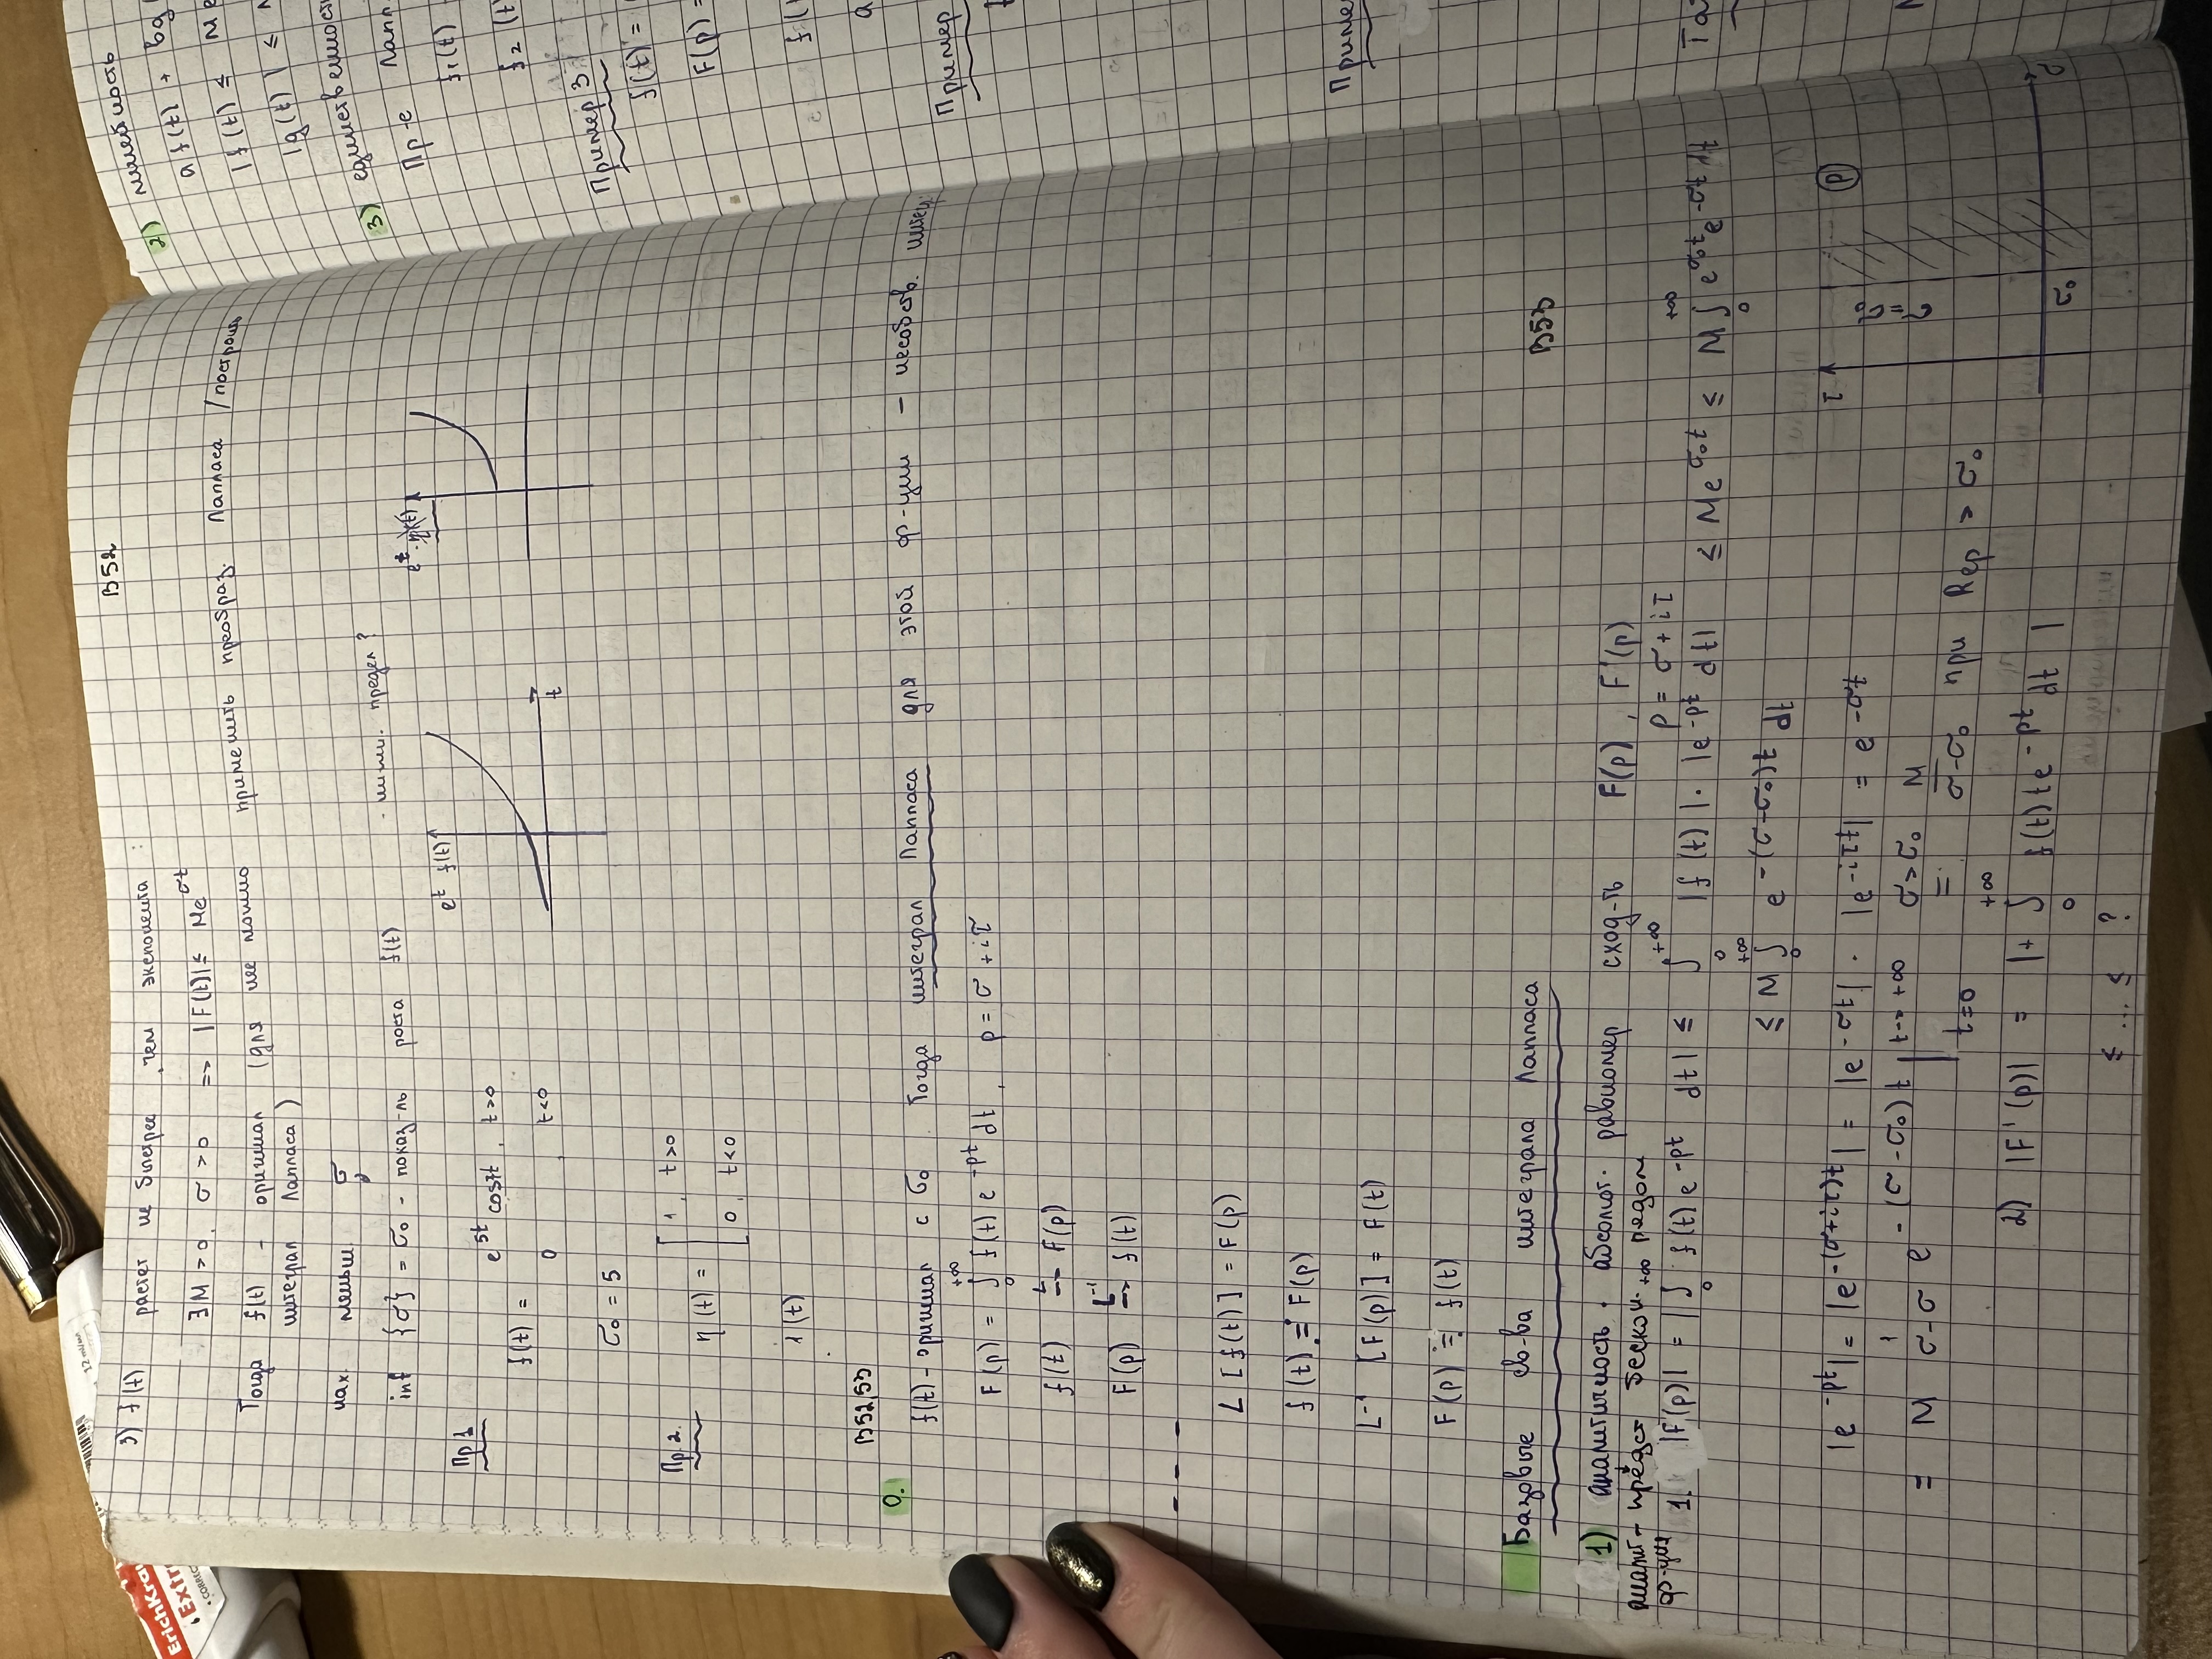 12 ml/мл
ErichKrau
Extr
CORREC
B52
3) f(t) растет не быстрее, чем экспонента :
∃M > 0, σ > 0 => |F(t)| ≤ Me^σt
Тогда f(t) - оригинал (для нее можно применить преобраз. Лапласа / построить
интеграл Лапласа)
наименьш σ
inf {σ} = σ₀ - показ-ль роста f(t) - нижн. предел?
Пр 1
e^t f(t)
t
f(t) =
e^5t cos7t, t>0
0, t<0
σ₀ = 5
Пр 2.
η(t) = [ 1, t>0
0, t<0
1(t)
B52,53
0. f(t) - оригинал с σ₀. Тогда интеграл Лапласа для этой ф-ции - несобств. интегр.
F(p) = ∫₀^+∞ f(t) e^-pt dt, p = σ + iτ
f(t) L→ F(p)
F(p) L⁻¹→ f(t)
- - -
L [f(t)] = F(p)
f(t) ≓ F(p)
L⁻¹ [F(p)] = F(t)
F(p) ≓ f(t)
Базовые св-ва интеграла Лапласа
B53
1) аналитичность. абсолют. равномер сход-ть F(p), F'(p)
аналит - предст бескон. рядом
ф-ция
p = σ + iτ
1. |F(p)| = |∫₀^+∞ f(t) e^-pt dt| ≤ ∫₀^+∞ |f(t)|·|e^-pt dt| ≤ Me^σ₀t ≤ M ∫₀^+∞ e^σ₀t e^-σt dt
≤ M ∫₀^+∞ e^-(σ-σ₀)t dt
|e^-pt| = |e^-(σ+iτ)t| = |e^-σt| · |e^-iτt| = e^-σt
= M 1 σ-σ e^-(σ-σ₀)t | t→+∞ t=0 σ>σ₀ = M/(σ-σ₀) при Rep > σ₀
2) |F'(p)| = |+ ∫₀^+∞ f(t) t e^-pt dt |
≤ ... ≤ ?
τ
p
σ₀
σ
2) линейность
a f(t) + bg
|f(t) ≤ Me
|g(t)| ≤
3)
Пр-е Лапл
f₁(t)
f₂(t
Пример 3
f(t) =
F(p) =
f(t
a
Пример